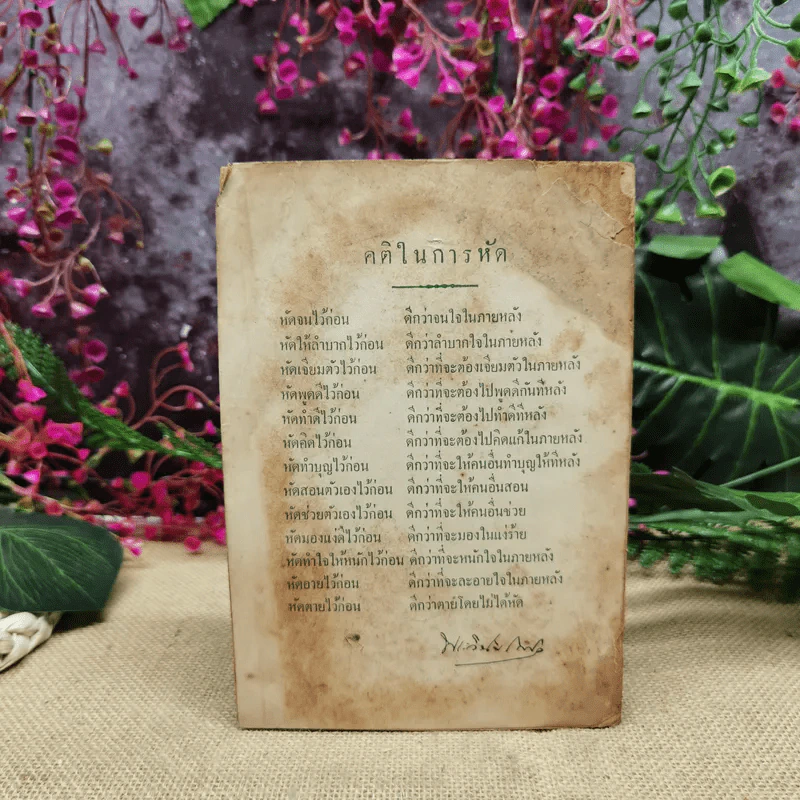 คติในการหัด
หัดจนไว้ก่อน ดีกว่าจนใจในภายหลัง
หัดให้ลำบากไว้ก่อน ดีกว่าลำบากใจในภายหลัง
หัดเจียมตัวไว้ก่อน ดีกว่าที่จะต้องเจียมตัวในภายหลัง
หัดพูดดีไว้ก่อน ดีกว่าที่จะต้องไปพูดดีกันทีหลัง
หัดทำดีไว้ก่อน ดีกว่าที่จะต้องไปทำดีทีหลัง
หัดคิดไว้ก่อน ดีกว่าที่จะต้องไปคิดแก้ในภายหลัง
หัดทำบุญไว้ก่อน ดีกว่าที่จะให้คนอื่นทำบุญให้ทีหลัง
หัดสอนตัวเองไว้ก่อน ดีกว่าที่จะให้คนอื่นสอน
หัดช่วยตัวเองไว้ก่อน ดีกว่าที่จะให้คนอื่นช่วย
หัดมองแง่ดีไว้ก่อน ดีกว่าที่จะมองในแง่ร้าย
หัดทำใจให้หนักไว้ก่อน ดีกว่าที่จะหนักใจในภายหลัง
หัดอายไว้ก่อน ดีกว่าที่จะละอายใจในภายหลัง
หัดตายไว้ก่อน ดีกว่าตายโดยไม่ได้หัด